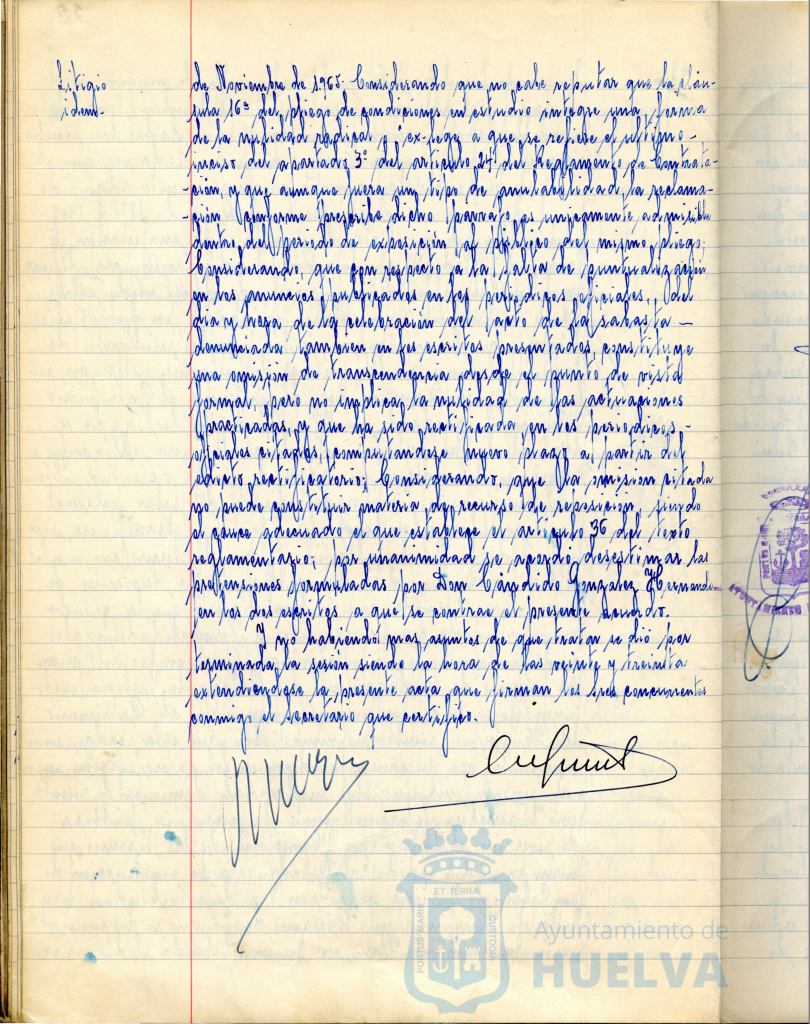 Litigio
idem-
de Noviembre de 1965. Considerando que no cabe reputar que la cláu-
sula 16ª del pliego de condiciones en estudio integre una forma
de la nulidad radical o "ex-lege" a que se refiere el último-
inciso del apartado 3º del artículo 24 del Reglamento de Contrata-
ción, y que aunque fuera un tipo de anulabilidad, la reclama-
ción conforme prescribe dicho párrafo, es unicamente admisible
dentro del periodo de exposición al público del mismo pliego;
Considerando, que con respecto a la falta de puntualización
en los anuncios publicados en los periodicos oficiales, del
dia y hora de la celebración del acto de la subasta-
denunciada tambien en los escritos presentados, constituye
una omisión de transcendencia desde el punto de vista
formal, pero no implica la nulidad de las actuaciones
practicadas, y que ha sido rectificada en los periodicos-
oficiales citados, computandose nuevo plazo a partir del
edicto rectificatorio; Considerando, que la omisión citada
no puede constituir materia de recurso de reposición, siendo
el cauce adecuado el que establece el artículo 36 del texto
reglamentario; por unanimidad se acordó desestimar las
pretensiones formuladas por Don Cándido González Hernande
en los dos escritos a que se contrae el presente acuerdo.
Y no habiendo mas asuntos de que tratar se dió por
terminada la sesión siendo la hora de las veinte y treinta
extendiendose la presente acta que firman los sres concurrentes
conmigo el secretario que certifico.
ET TERRA
PORTUS MARIS
CUSTODIA
Ayuntamiento de
HUELVA